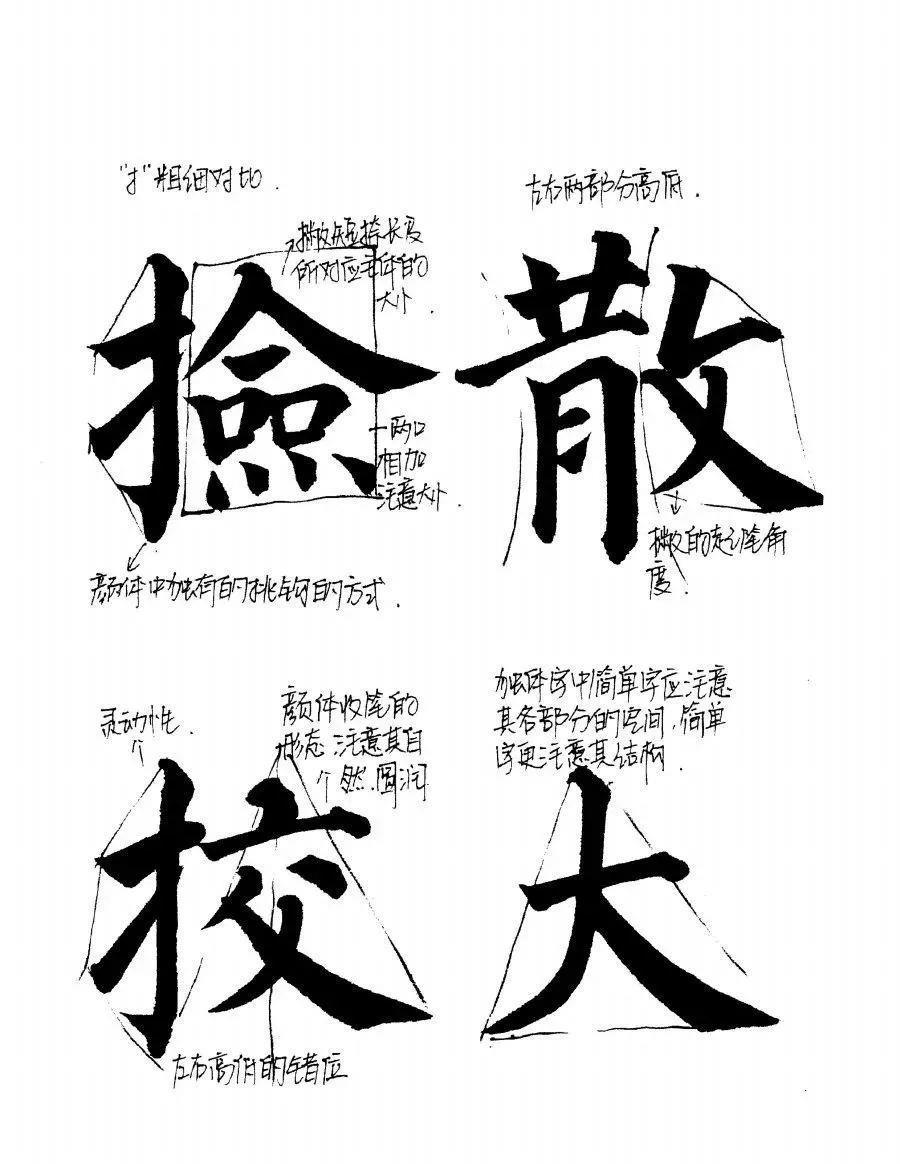 "扌"粗细对比.
撇短捺长及
所对应字体的
大小.
撿
一两口
相加
注意大小.
颜体中独有的挑钩的方式.
左右两部分高低.
散
撇的起笔角
度.
灵动性.
颜体收笔的
形态.注意其自
然.圆润
挍
左右高低的错位
独体字中简单字应注意
其各部分的空间.简单
字更注意其结构.
大